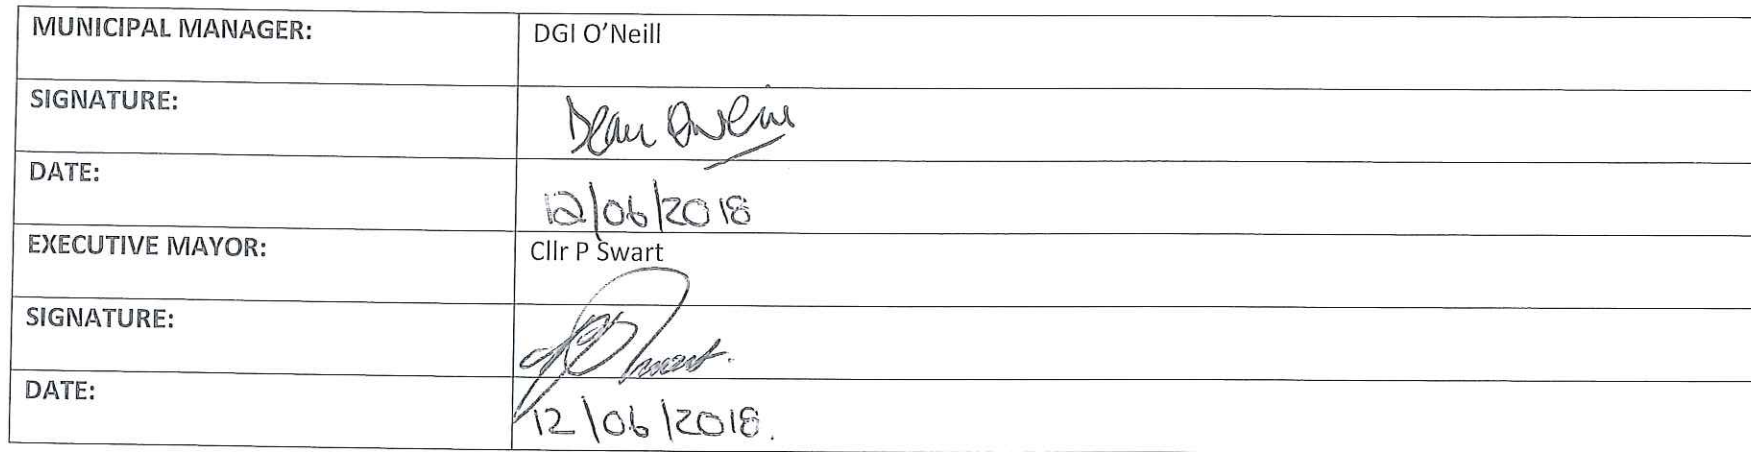 MUNICIPAL MANAGER: DGI O'Neill
SIGNATURE: Dean O'Neill
DATE: 12/06/2018
EXECUTIVE MAYOR: Cllr P Swart
SIGNATURE: Swart.
DATE: 12/06/2018.